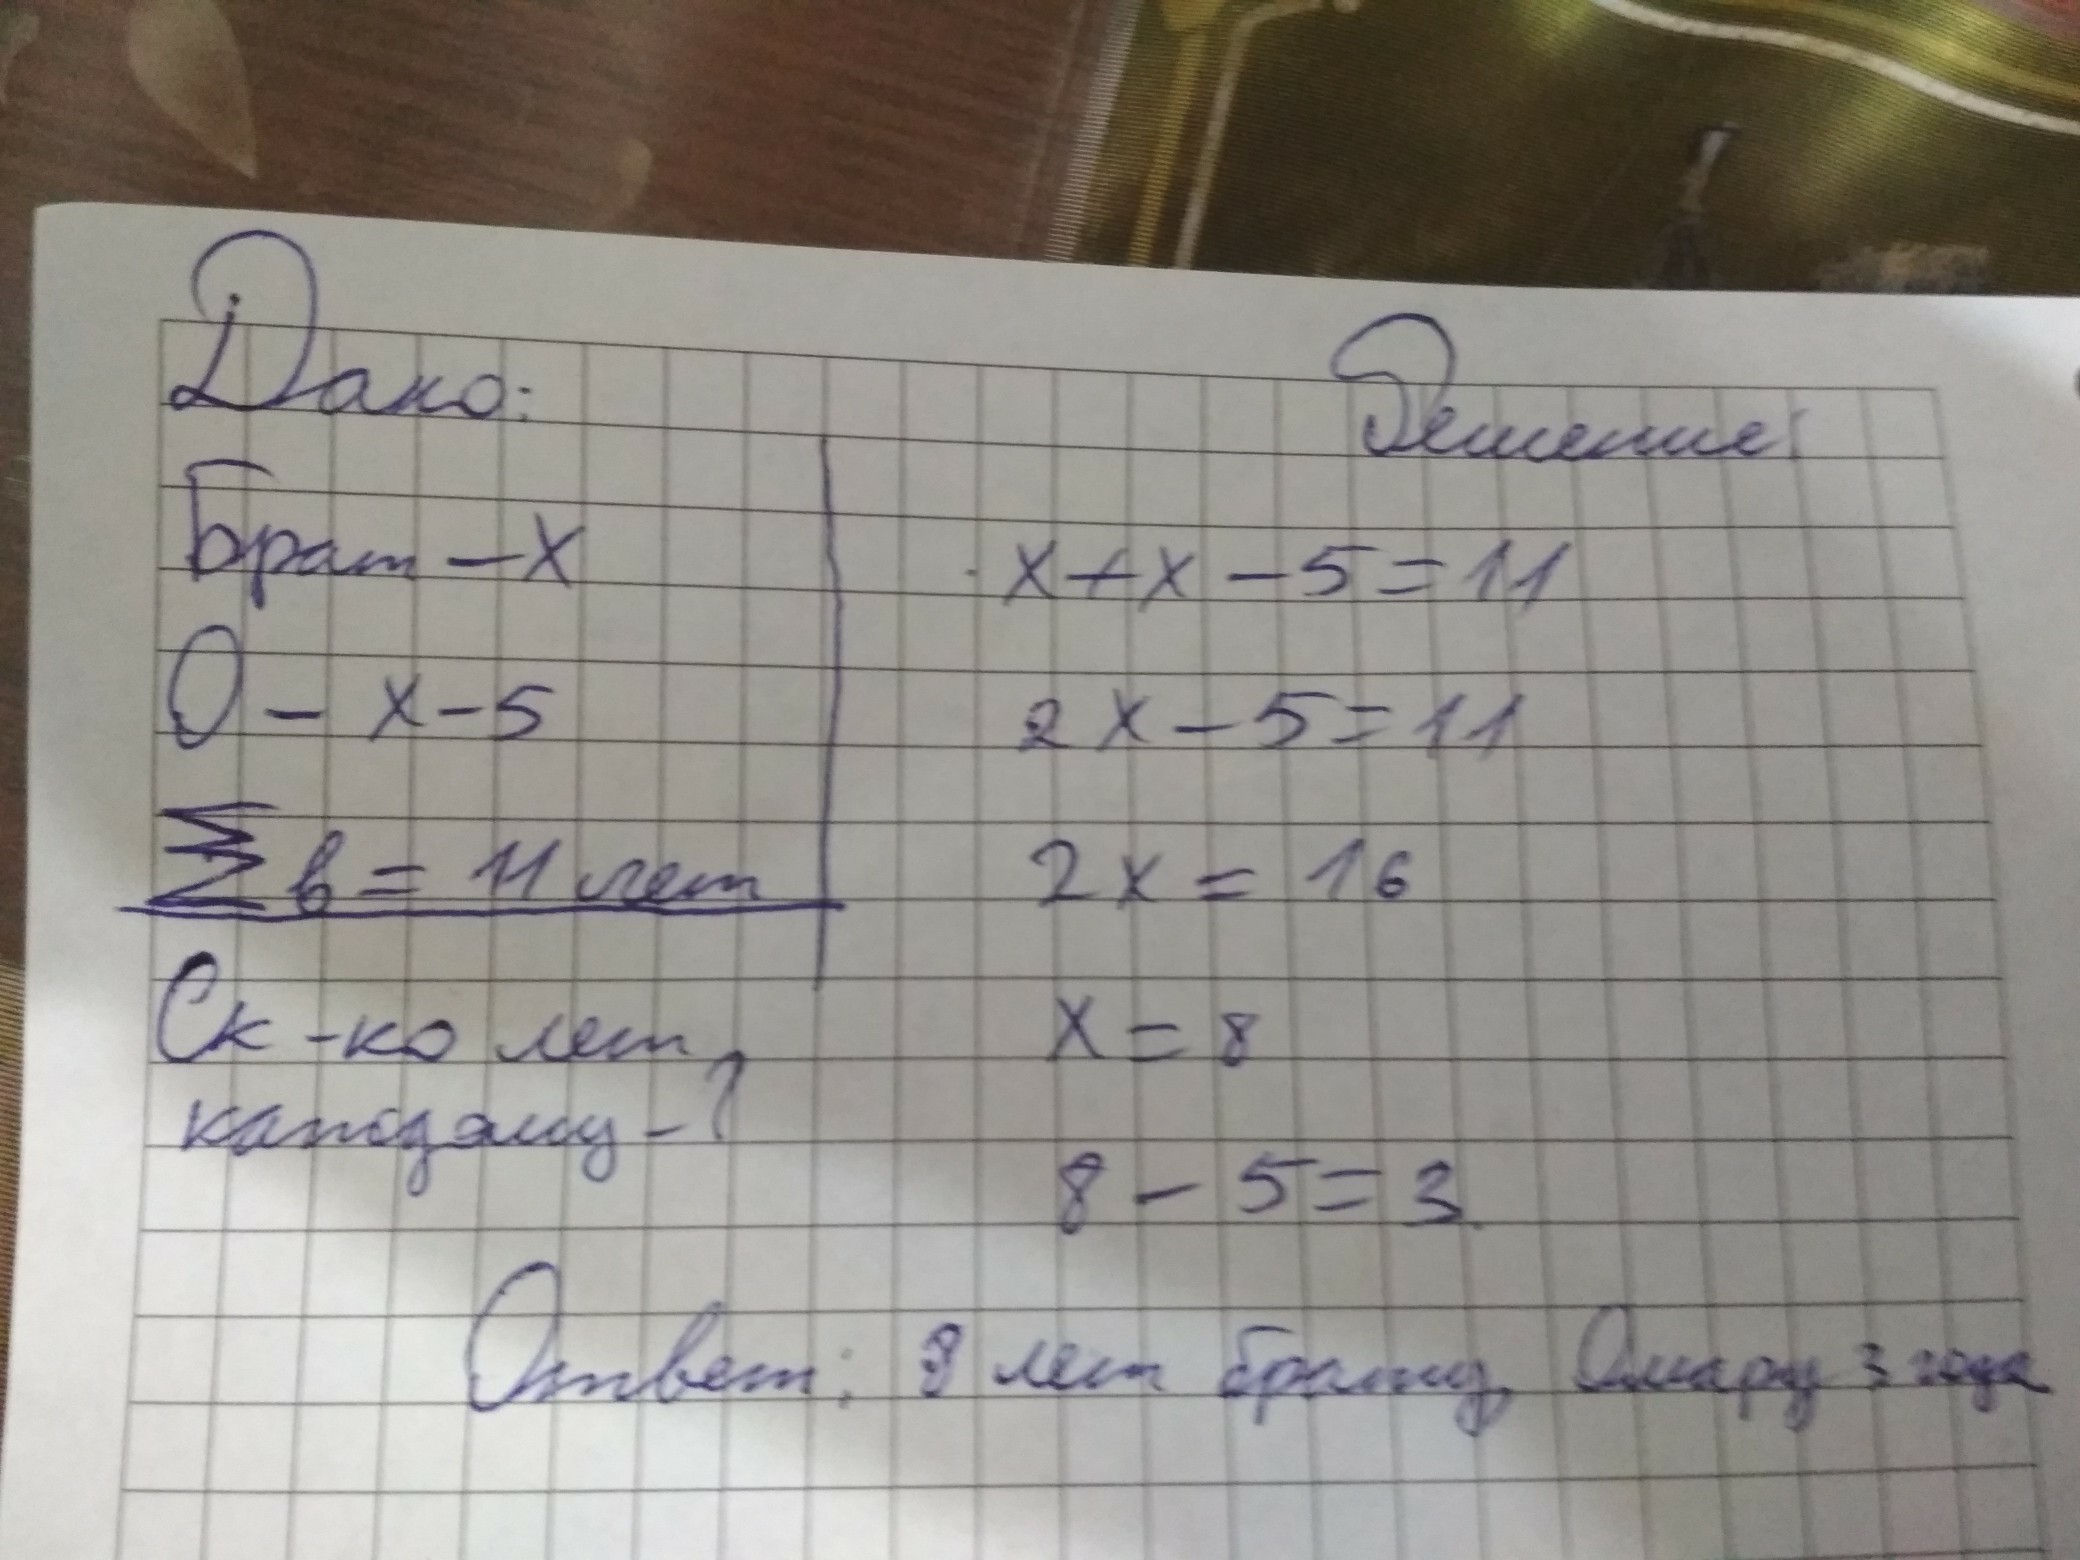 Дано:
Брат – x
О – x – 5
Σ в = 11 лет
Ск-ко лет
каждому – ?
Решение:
x + x – 5 = 11
2x – 5 = 11
2x = 16
x = 8
8 – 5 = 3
Ответ: 8 лет брату, Омару 3 года